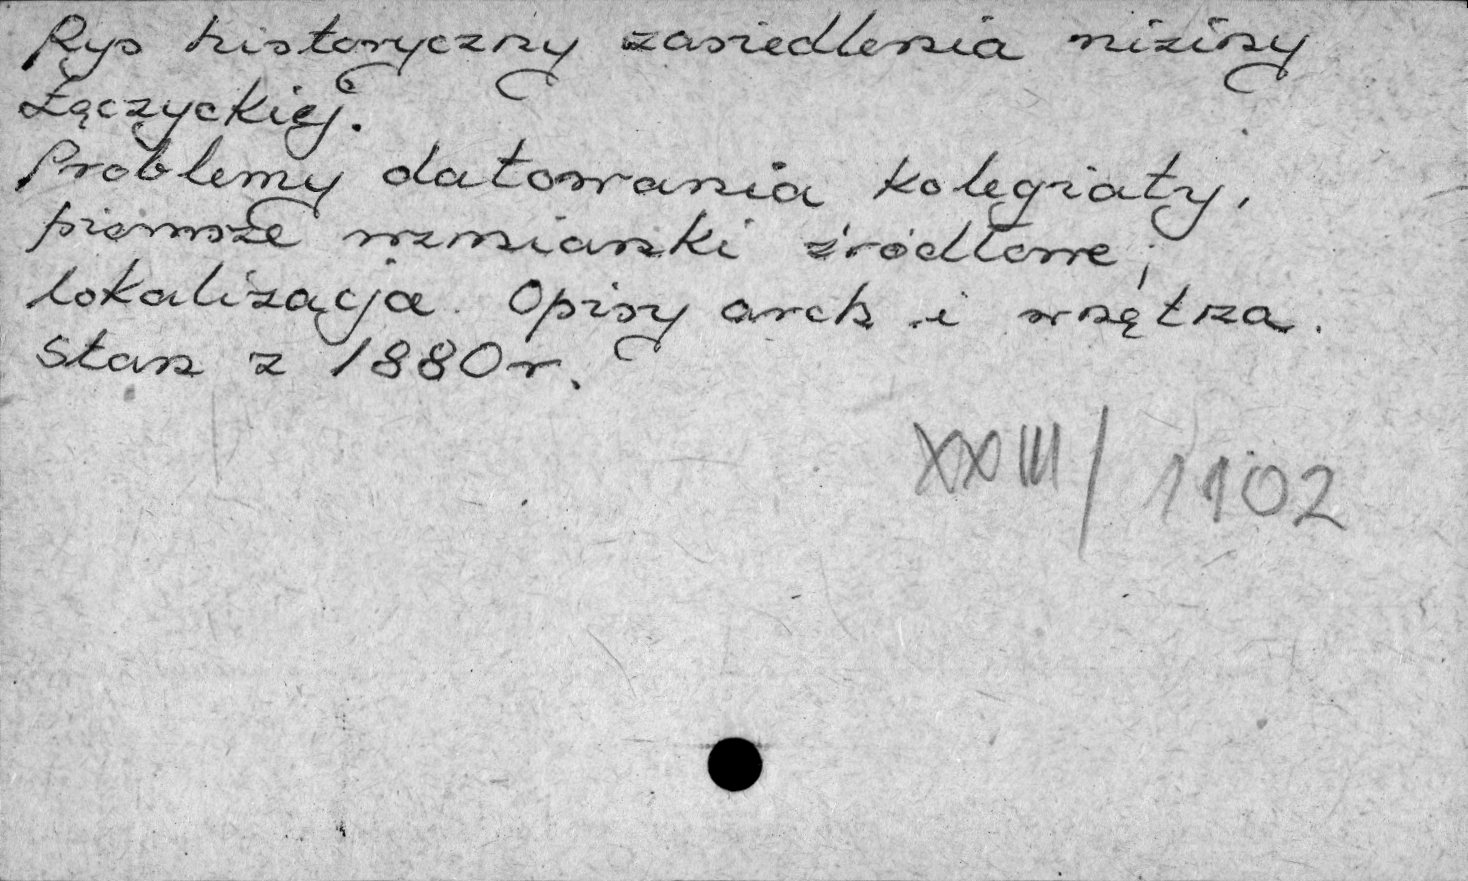 Rys historyczny zasiedlenia niziny
Łęczyckiej.
Problemy datowania kolegiaty,
pierwsze wzmianki źródłowe;
lokalizacja. Opisy arch i wnętrza.
Stan z 1880 r.
XXIII/1102